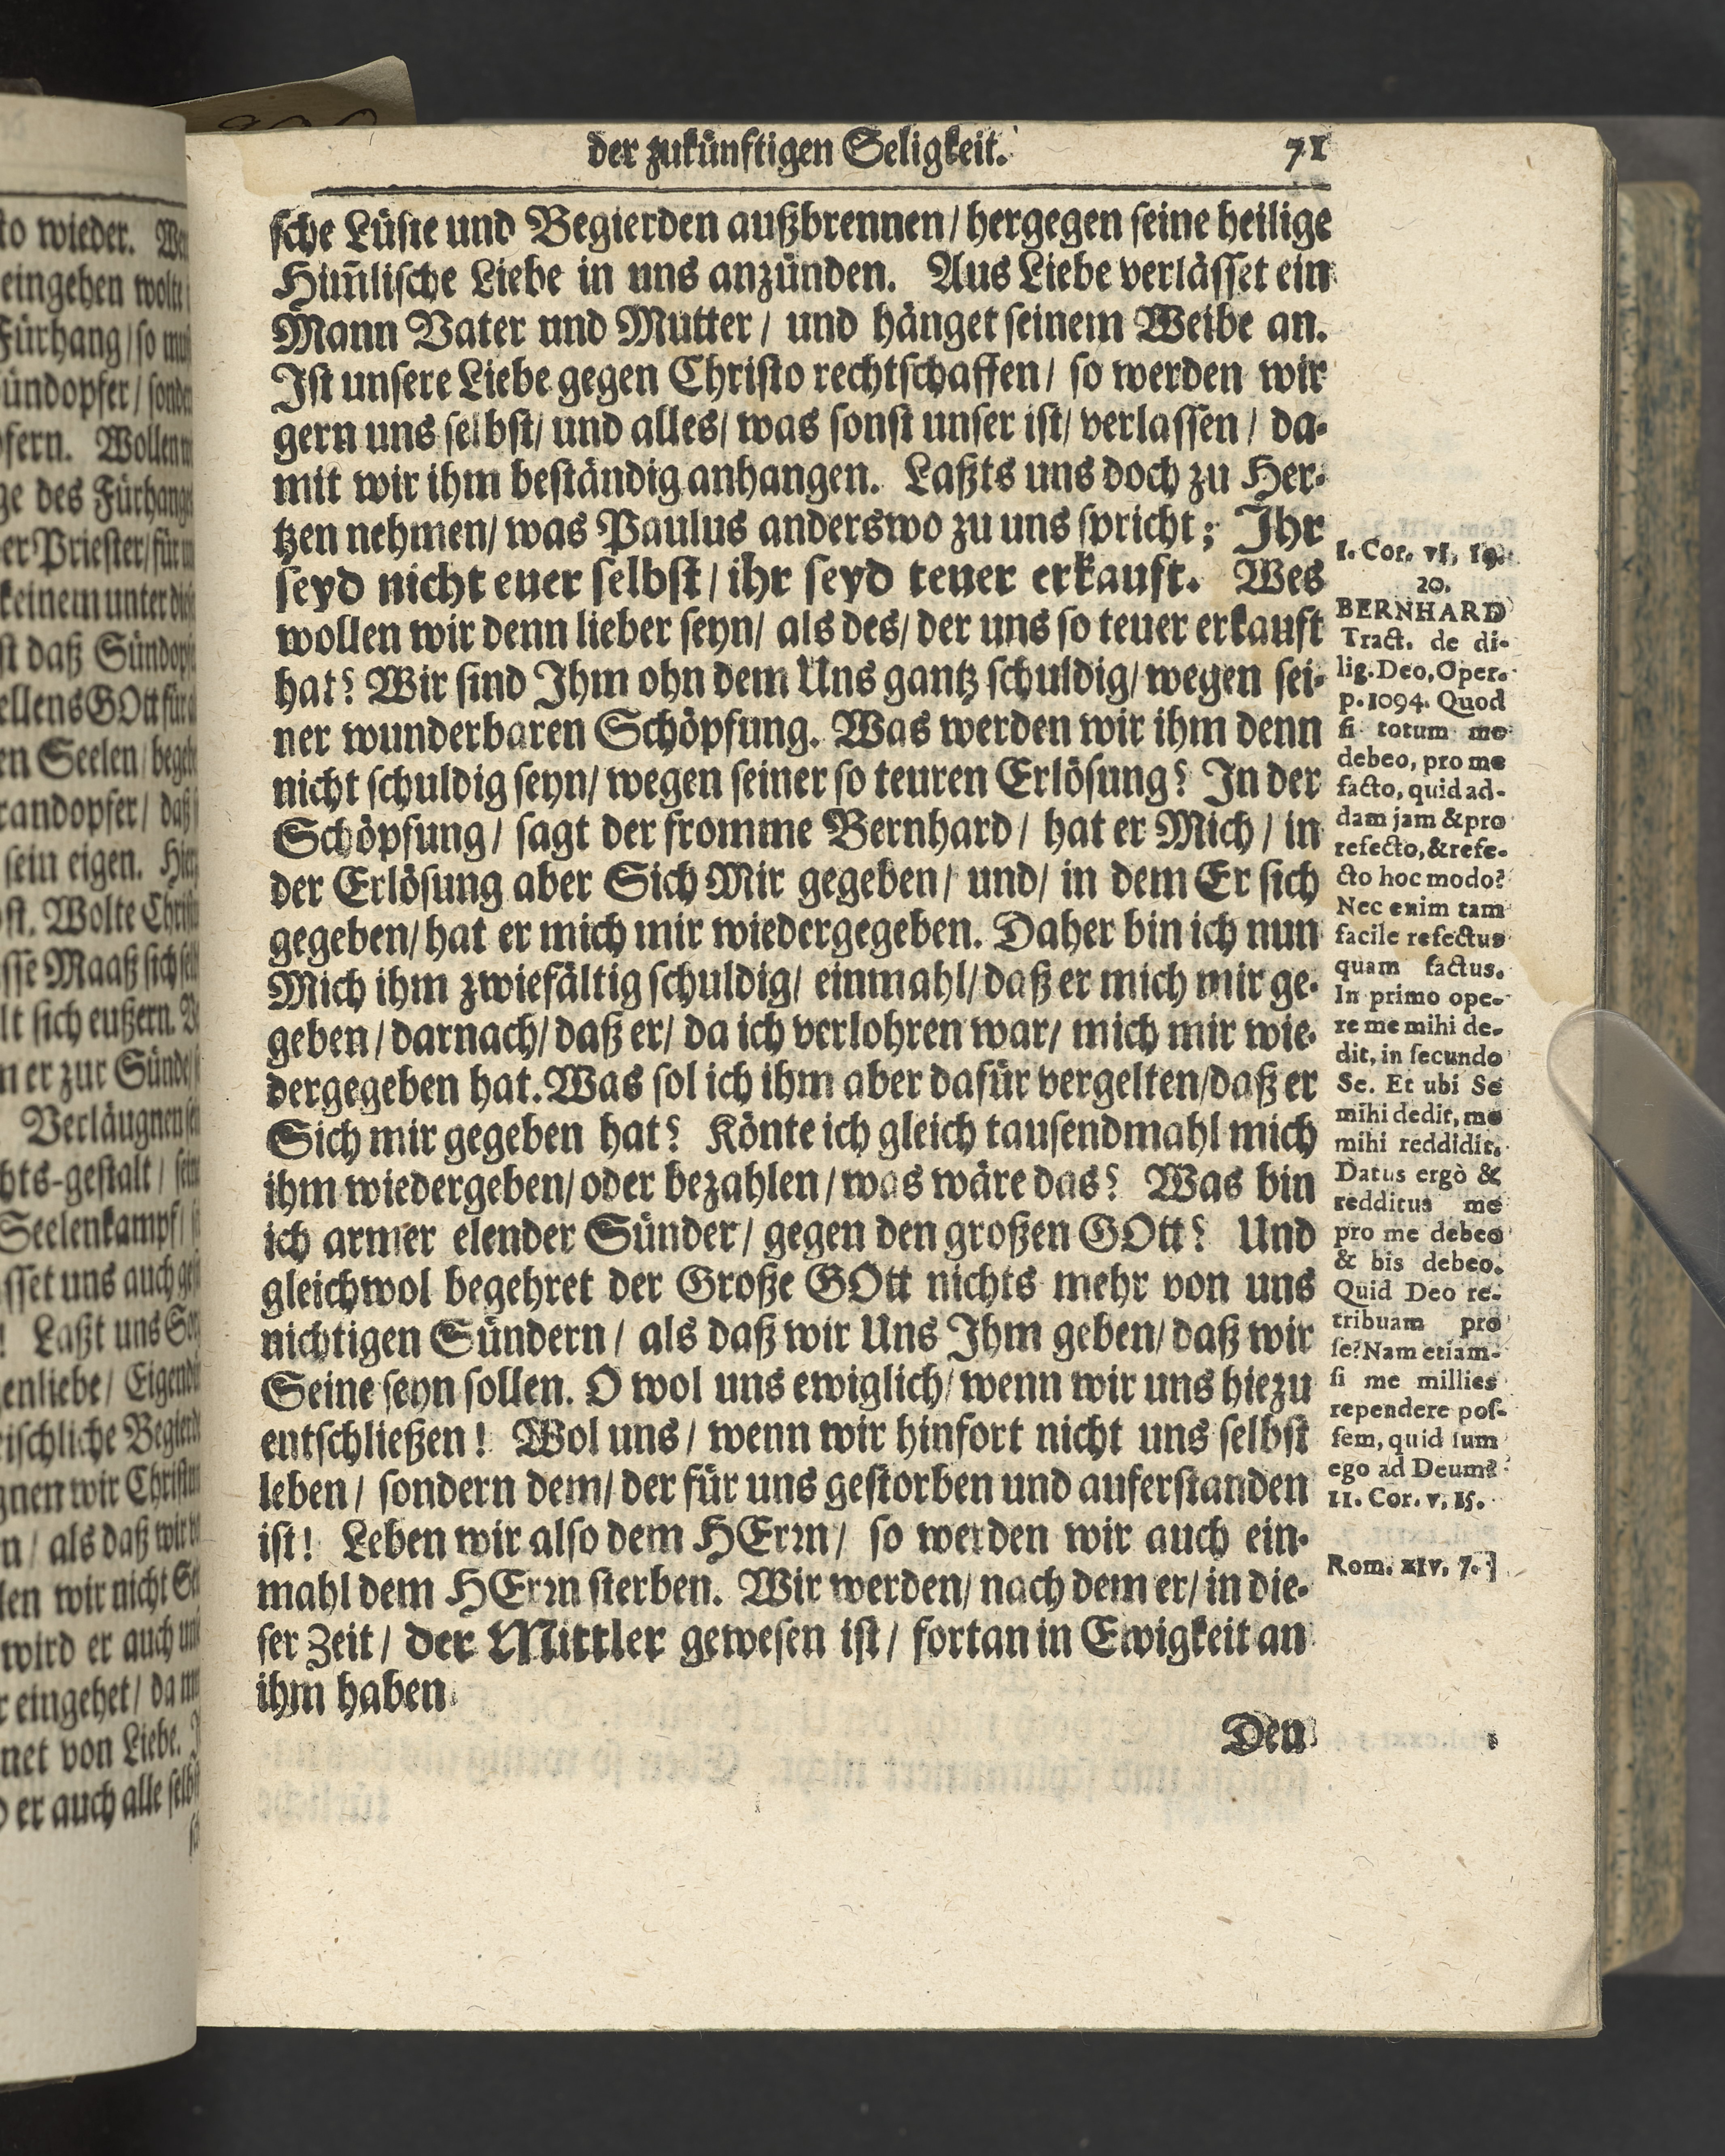 der zukünftigen Seligkeit. 71
sche Lüste und Begierden außbrennen/ hergegen seine heilige
Him̃lische Liebe in uns anzünden. Aus Liebe verlässet ein
Mann Vater und Mutter/ und hänget seinem Weibe an.
Ist unsere Liebe gegen Christo rechtschaffen/ so werden wir
gern uns selbst/ und alles/ was sonst unser ist/ verlassen/ da-
mit wir ihm beständig anhangen. Laßts uns doch zu Her-
tzen nehmen/ was Paulus anderswo zu uns spricht; Ihr
seyd nicht euer selbst/ ihr seyd teuer erkauft. Wes
wollen wir denn lieber seyn/ als des/ der uns so teuer erkauft
hat? Wir sind Ihm ohn dem Uns gantz schuldig/ wegen sei-
ner wunderbaren Schöpfung. Was werden wir ihm denn
nicht schuldig seyn/ wegen seiner so teuren Erlösung? In der
Schöpfung/ sagt der fromme Bernhard/ hat er Mich/ in
der Erlösung aber Sich Mir gegeben/ und/ in dem Er sich
gegeben/ hat er mich mir wiedergegeben. Daher bin ich nun
Mich ihm zwiefältig schuldig/ einmahl/ daß er mich mir ge-
geben/ darnach/ daß er/ da ich verlohren war/ mich mir wie-
dergegeben hat. Was sol ich ihm aber dafür vergelten/ daß er
Sich mir gegeben hat? Könte ich gleich tausendmahl mich
ihm wiedergeben/ oder bezahlen/ was wäre das? Was bin
ich armer elender Sünder/ gegen den großen GOtt? Und
gleichwol begehret der Große GOtt nichts mehr von uns
nichtigen Sündern/ als daß wir Uns Ihm geben/ daß wir
Seine seyn sollen. O wol uns ewiglich/ wenn wir uns hiezu
entschließen! Wol uns/ wenn wir hinfort nicht uns selbst
leben/ sondern dem/ der für uns gestorben und auferstanden
ist! Leben wir also dem HErrn/ so werden wir auch ein-
mahl dem HErrn sterben. Wir werden/ nach dem er/ in die-
ser Zeit/ der Mittler gewesen ist/ fortan in Ewigkeit an
ihm haben
Den
I. Cor. VI, 19.
20.
BERNHARD
Tract. de di-
lig. Deo, Oper.
p. 1094. Quod
si totum me
debeo, pro me
facto, quid ad-
dam jam & pro
refecto, & refe-
cto hoc modo?
Nec enim tam
facile refectus
quam factus.
In primo ope-
re me mihi de-
dit, in secundo
Se. Et ubi Se
mihi dedit, me
mihi reddidit.
Datus ergò &
redditus me
pro me debeo
& bis debeo.
Quid Deo re-
tribuam pro
se? Nam etiam-
si me millies
rependere pos-
sem, quid sum
ego ad Deum?
II. Cor. V, 15.
Rom. XIV, 7.